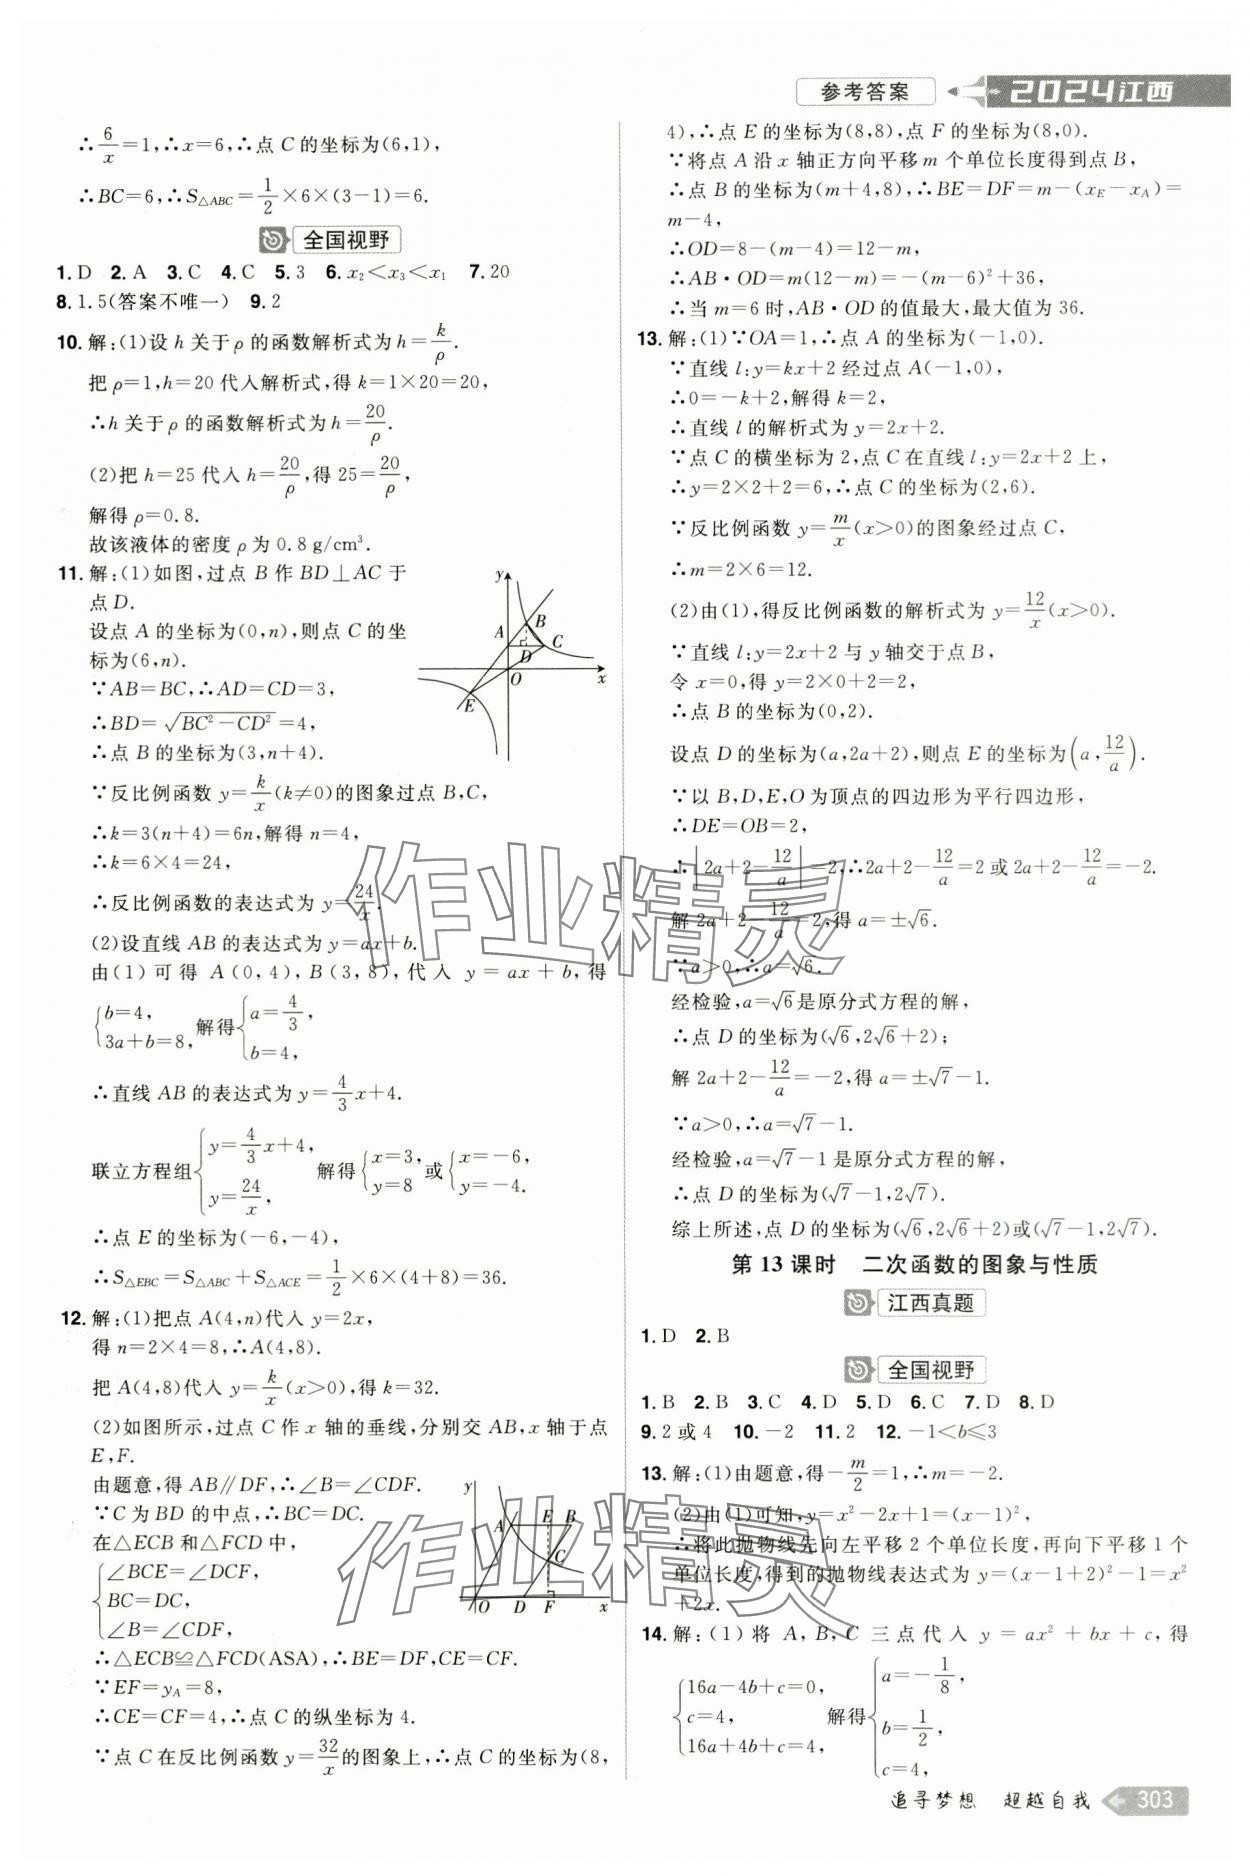 参考答案
2024江西
∴6/x=1,∴x=6,∴点 C 的坐标为(6,1),
∴BC=6,∴S△ABC=1/2×6×(3-1)=6.
全国视野
1.D 2.A 3.C 4.C 5.3 6.x₂<x₃<x₁ 7.20
8.1.5(答案不唯一) 9.2
10.解:(1)设 h 关于 ρ 的函数解析式为 h=k/ρ.
把 ρ=1,h=20 代入解析式,得 k=1×20=20,
∴h 关于 ρ 的函数解析式为 h=20/ρ.
(2)把 h=25 代入 h=20/ρ,得 25=20/ρ,
解得 ρ=0.8.
故该液体的密度 ρ 为 0.8 g/cm³.
11.解:(1)如图,过点 B 作 BD⊥AC 于
点 D.
设点 A 的坐标为(0,n),则点 C 的坐
标为(6,n).
∵AB=BC,∴AD=CD=3,
∴BD=√(BC²-CD²)=4,
∴点 B 的坐标为(3,n+4).
y A B C D O x E
∵反比例函数 y=k/x(k≠0)的图象过点 B,C,
∴k=3(n+4)=6n,解得 n=4,
∴k=6×4=24,
∴反比例函数的表达式为 y=24/x.
(2)设直线 AB 的表达式为 y=ax+b.
由(1)可得 A(0,4),B(3,8),代入 y=ax+b,得
{b=4, 3a+b=8, 解得{a=4/3, b=4,
∴直线 AB 的表达式为 y=4/3x+4.
联立方程组{y=4/3x+4, y=24/x, 解得{x=3, y=8 或{x=-6, y=-4.
∴点 E 的坐标为(-6,-4),
∴S△EBC=S△ABC+S△ACE=1/2×6×(4+8)=36.
12.解:(1)把点 A(4,n)代入 y=2x,
得 n=2×4=8,∴A(4,8).
把 A(4,8)代入 y=k/x(x>0),得 k=32.
(2)如图所示,过点 C 作 x 轴的垂线,分别交 AB,x 轴于点
E,F.
由题意,得 AB∥DF,∴∠B=∠CDF.
∵C 为 BD 的中点,∴BC=DC.
在△ECB 和△FCD 中,
{∠BCE=∠DCF,
BC=DC,
∠B=∠CDF,
y A E B C O D F x
∴△ECB≌△FCD(ASA),∴BE=DF,CE=CF.
∵EF=yA=8,
∴CE=CF=4,∴点 C 的纵坐标为 4.
∵点 C 在反比例函数 y=32/x的图象上,∴点 C 的坐标为(8,
4),∴点 E 的坐标为(8,8),点 F 的坐标为(8,0).
∵将点 A 沿 x 轴正方向平移 m 个单位长度得到点 B,
∴点 B 的坐标为(m+4,8),∴BE=DF=m-(xE-xA)=
m-4,
∴OD=8-(m-4)=12-m,
∴AB·OD=m(12-m)=-(m-6)²+36,
∴当 m=6 时,AB·OD 的值最大,最大值为 36.
13.解:(1)∵OA=1,∴点 A 的坐标为(-1,0).
∵直线 l:y=kx+2 经过点 A(-1,0),
∴0=-k+2,解得 k=2,
∴直线 l 的解析式为 y=2x+2.
∵点 C 的横坐标为 2,点 C 在直线 l:y=2x+2 上,
∴y=2×2+2=6,∴点 C 的坐标为(2,6).
∵反比例函数 y=m/x(x>0)的图象经过点 C,
∴m=2×6=12.
(2)由(1),得反比例函数的解析式为 y=12/x(x>0).
∵直线 l:y=2x+2 与 y 轴交于点 B,
令 x=0,得 y=2×0+2=2,
∴点 B 的坐标为(0,2).
设点 D 的坐标为(a,2a+2),则点 E 的坐标为(a,12/a).
∵以 B,D,E,O 为顶点的四边形为平行四边形,
∴DE=OB=2,
∴|2a+2-12/a|=2,∴2a+2-12/a=2 或 2a+2-12/a=-2.
解 2a+2-12/a=2,得 a=±√6.
∵a>0,∴a=√6.
经检验,a=√6是原分式方程的解,
∴点 D 的坐标为(√6,2√6+2);
解 2a+2-12/a=-2,得 a=±√7-1.
∵a>0,∴a=√7-1.
经检验,a=√7-1 是原分式方程的解,
∴点 D 的坐标为(√7-1,2√7).
综上所述,点 D 的坐标为(√6,2√6+2)或(√7-1,2√7).
第 13 课时 二次函数的图象与性质
江西真题
1.D 2.B
全国视野
1.B 2.B 3.C 4.D 5.D 6.C 7.D 8.D
9.2 或 4 10.-2 11.2 12.-1<b≤3
13.解:(1)由题意,得-m/2=1,∴m=-2.
(2)由(1)可知,y=x²-2x+1=(x-1)²,
∴将此抛物线先向左平移 2 个单位长度,再向下平移 1 个
单位长度,得到的抛物线表达式为 y=(x-1+2)²-1=x²
+2x.
14.解:(1)将 A,B,C 三点代入 y=ax²+bx+c,得
{16a-4b+c=0, c=4, 16a+4b+c=4, 解得{a=-1/8, b=1/2, c=4,
作业精灵
作业精灵
追寻梦想 超越自我 303